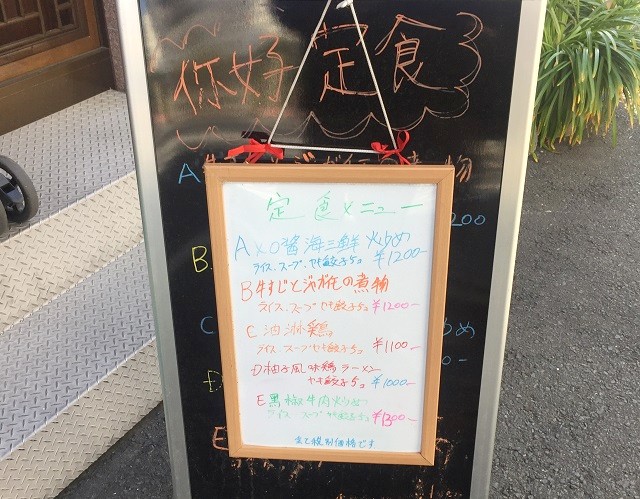 你好 定食
A
の煮物
200
B
C
D
E
定食メニュー
A XO醤海三鮮炒め
ライス、スープ ヤキ餃子5コ ¥1200-
B 牛すじとジャガイモの煮物
ライス、スープ ヤキ餃子5コ ¥1200-
C 油淋鶏
ライス、スープ ヤキ餃子5コ ¥1100-
D 柚子風味鶏ラーメン
ヤキ餃子5コ ¥1000-
E 黒椒牛肉炒め
ライス スープ ヤキ餃子5コ ¥1300-
全て税別価格です